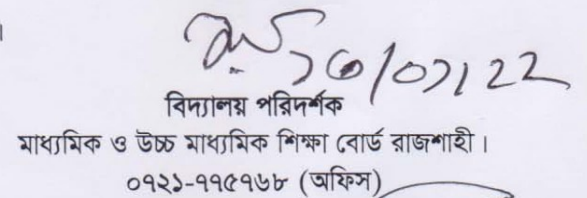 ।
১৬/০১/২২
বিদ্যালয় পরিদর্শক
মাধ্যমিক ও উচ্চ মাধ্যমিক শিক্ষা বোর্ড রাজশাহী।
০৭২১-৭৭৫৭৬৮ (অফিস)